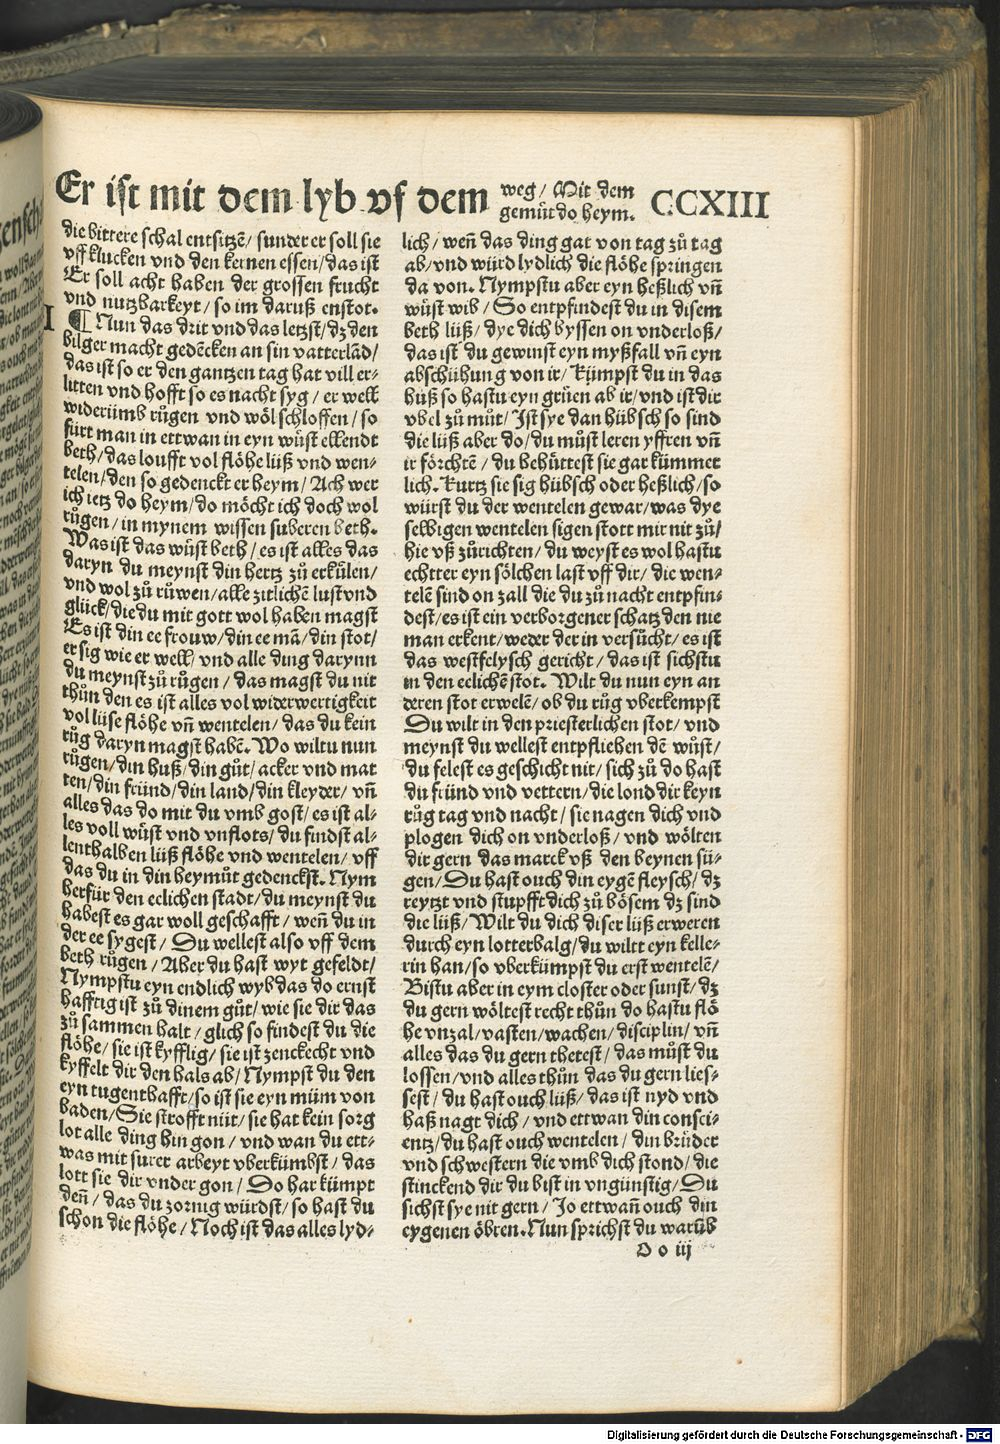 Er ist mit dem lyb vf dem weg/ Mit dem gemüt do heym. CCXIII
die bittere schal entsitzē/ sunder er soll sie
vff klucken vnd den kernen essen/das ist
Er soll acht haben der grossen frucht
vnd nutzbarkeyt/ so im daruß enstot.
I ¶ Nun das drit vnd das letzst/dz den
bilger macht gedēcken an sin vatterlād/
das ist so er den gantzen tag hat vill er-
litten vnd hofft so es nacht syg/ er well
widerümb růgen vnd wöl schloffen/ so
fürt man in ettwan in eyn wüst ellendt
beth/das loufft vol flöhe lüß vnd wen-
telen/den so gedenckt er heym/ Ach wer
ich ietz do heym/do möcht ich doch wol
růgen/ in mynem wissen suberen beth.
Was ist das wüst beth/ es ist alles das
daryn du meynst din hertz zů erkůlen/
vnd wol zů růwen/alle zitlichē lust vnd
glück/die du mit gott wol haben magst
Es ist din ee frouw/din ee mā/din stot/
er sig wie er well/ vnd alle ding darynn
du meynst zů růgen/ das magst du nit
thůn den es ist alles vol widerwertigkeit
vol lüse flöhe vñ wentelen/ das du kein
růg daryn magst habē. Wo wiltu nun
růgen/din huß/din gůt/ acker vnd mat
ten/din fründ/din land/din kleyder/ vñ
alles das do mit du vmb gost/ es ist al-
les voll wüst vnd vnflots/ du findst al-
lenthalben lüß flöhe vnd wentelen/ vff
das du in din heymüt gedenckst. Nym
herfür den eelichen stadt/ du meynst du
habest es gar woll geschafft/ weñ du in
der ee sygest/ Du wellest also vff dem
beth růgen/ Aber du hast wyt gefeldt/
Nympstu eyn endlich wyb das do ernst
hafftig ist zů dinem gůt/ wie sie dir das
zů sammen halt/ glich so findest du die
flöhe/ sie ist kyfflig/ sie ist zenckecht vnd
kyffelt dir den hals ab/ Nympst du den
eyn tugenthafft/so ist sie eyn müm von
baden/Sie strofft nüt/ sie hat kein sorg
lot alle ding hin gon/ vnd wan du ett-
was mit surer arbeyt vberkümbst/ das
lott sie dir vnder gon/ So har kümpt
deñ/ das du zornig würdst/ so hast du
schon die flöhe/ Noch ist das alles lyd-
lich/ weñ das ding gat von tag zů tag
ab/vnd würd lydlich die flöhe springen
da von. Nympstu aber eyn heßlich vñ
wüst wib/ So entpfindest du in disem
beth lüß/ dye dich byssen on vnderloß/
das ist du gewinst eyn myßfall vñ eyn
abschühung von ir/ kümpst du in das
huß so hastu eyn grüen ab ir/vnd ist dir
vbel zů můt/ Ist sye dan hübsch so sind
die lüß aber do/du můst leren yffren vñ
ir förchtē/ du behüttest sie gar kümmer
lich. Kurtz sie sig hübsch oder heßlich/so
würst du der wentelen gewar/was dye
selbigen wentelen sigen stott mir nit zů/
hie vß zůrichten/ du weyst es wol hastu
echtter eyn sölchen last vff dir/ die wen-
telē sind on zall die du zů nacht entpfin-
dest/es ist ein verborgener schatz den nie
man erkent/weder der in versůcht/es ist
das westfelysch gericht/ das ist sichstu
in den eelichē stot. Wilt du nun eyn an
deren stot erwelē/ ob du růg vberkempst
Du wilt in den priesterlichen stot/ vnd
meynst du wellest entpfliehen dē wüst/
du felest es geschicht nit/ sich zů do hast
du fründ vnd vettern/die lond dir keyn
růg tag vnd nacht/ sie nagen dich vnd
plogen dich on vnderloß/ vnd wölten
dir gern das marck vß den beynen sü-
gen/ Du hast ouch din eygē fleysch/ dz
reytzt vnd stupfft dich zů bösem dz sind
die lüß/ Wilt du dich diser lüß erweren
durch eyn lotterbalg/du wiltt eyn kelle-
rin han/so vberkümpst du erst wentelē/
Bistu aber in eym closter oder sunst/ dz
du gern wöltest recht thůn do hastu flö
he vnzal/vasten/wachen/ disciplin/ vñ
alles das du gern thetest/ das můst du
lossen/vnd alles thůn das du gern lies-
sest/ du hast ouch lüß/ das ist nyd vnd
haß nagt dich/ vnd ettwan din consci-
entz/du hast ouch wentelen/ din brüder
vnd schwestern die vmb dich stond/ die
stinckend dir du bist in vngünstig/ Du
sichst sye nit gern/ Jo ettwañ ouch din
eygenen öbren. Nun sprichst du warūb
O o iij
Digitalisierung gefördert durch die Deutsche Forschungsgemeinschaft - DFG